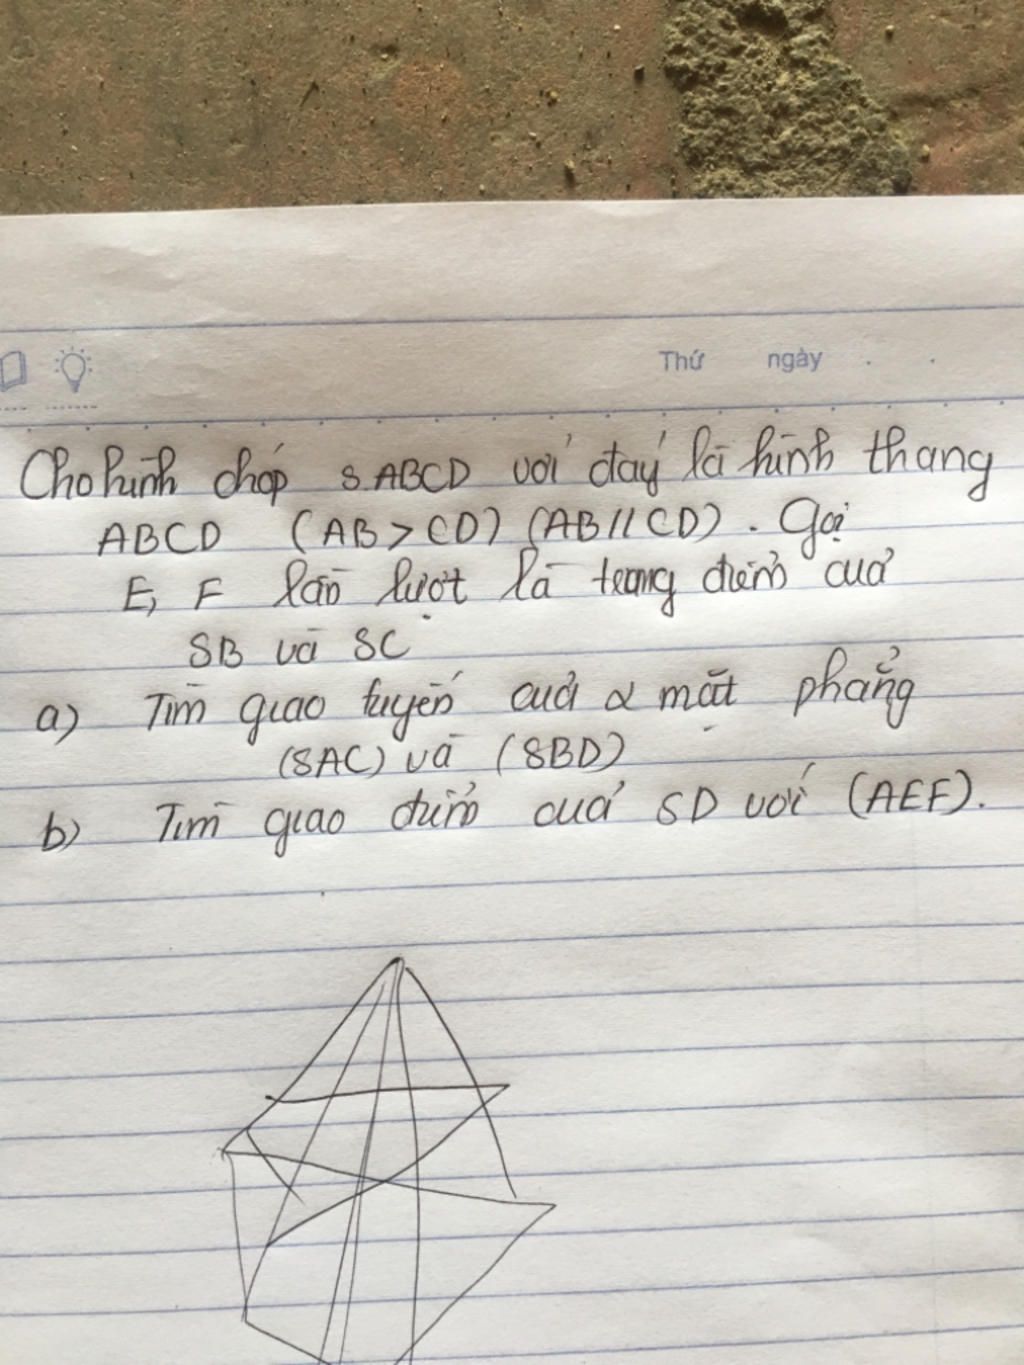 Thứ ngày
Cho hình chóp S.ABCD với đáy là hình thang
ABCD (AB > CD) (AB // CD). Gọi
E, F lần lượt là trung điểm của
SB và SC
a) Tìm giao tuyến của 2 mặt phẳng
(SAC) và (SBD)
b) Tìm giao điểm của SD với (AEF).